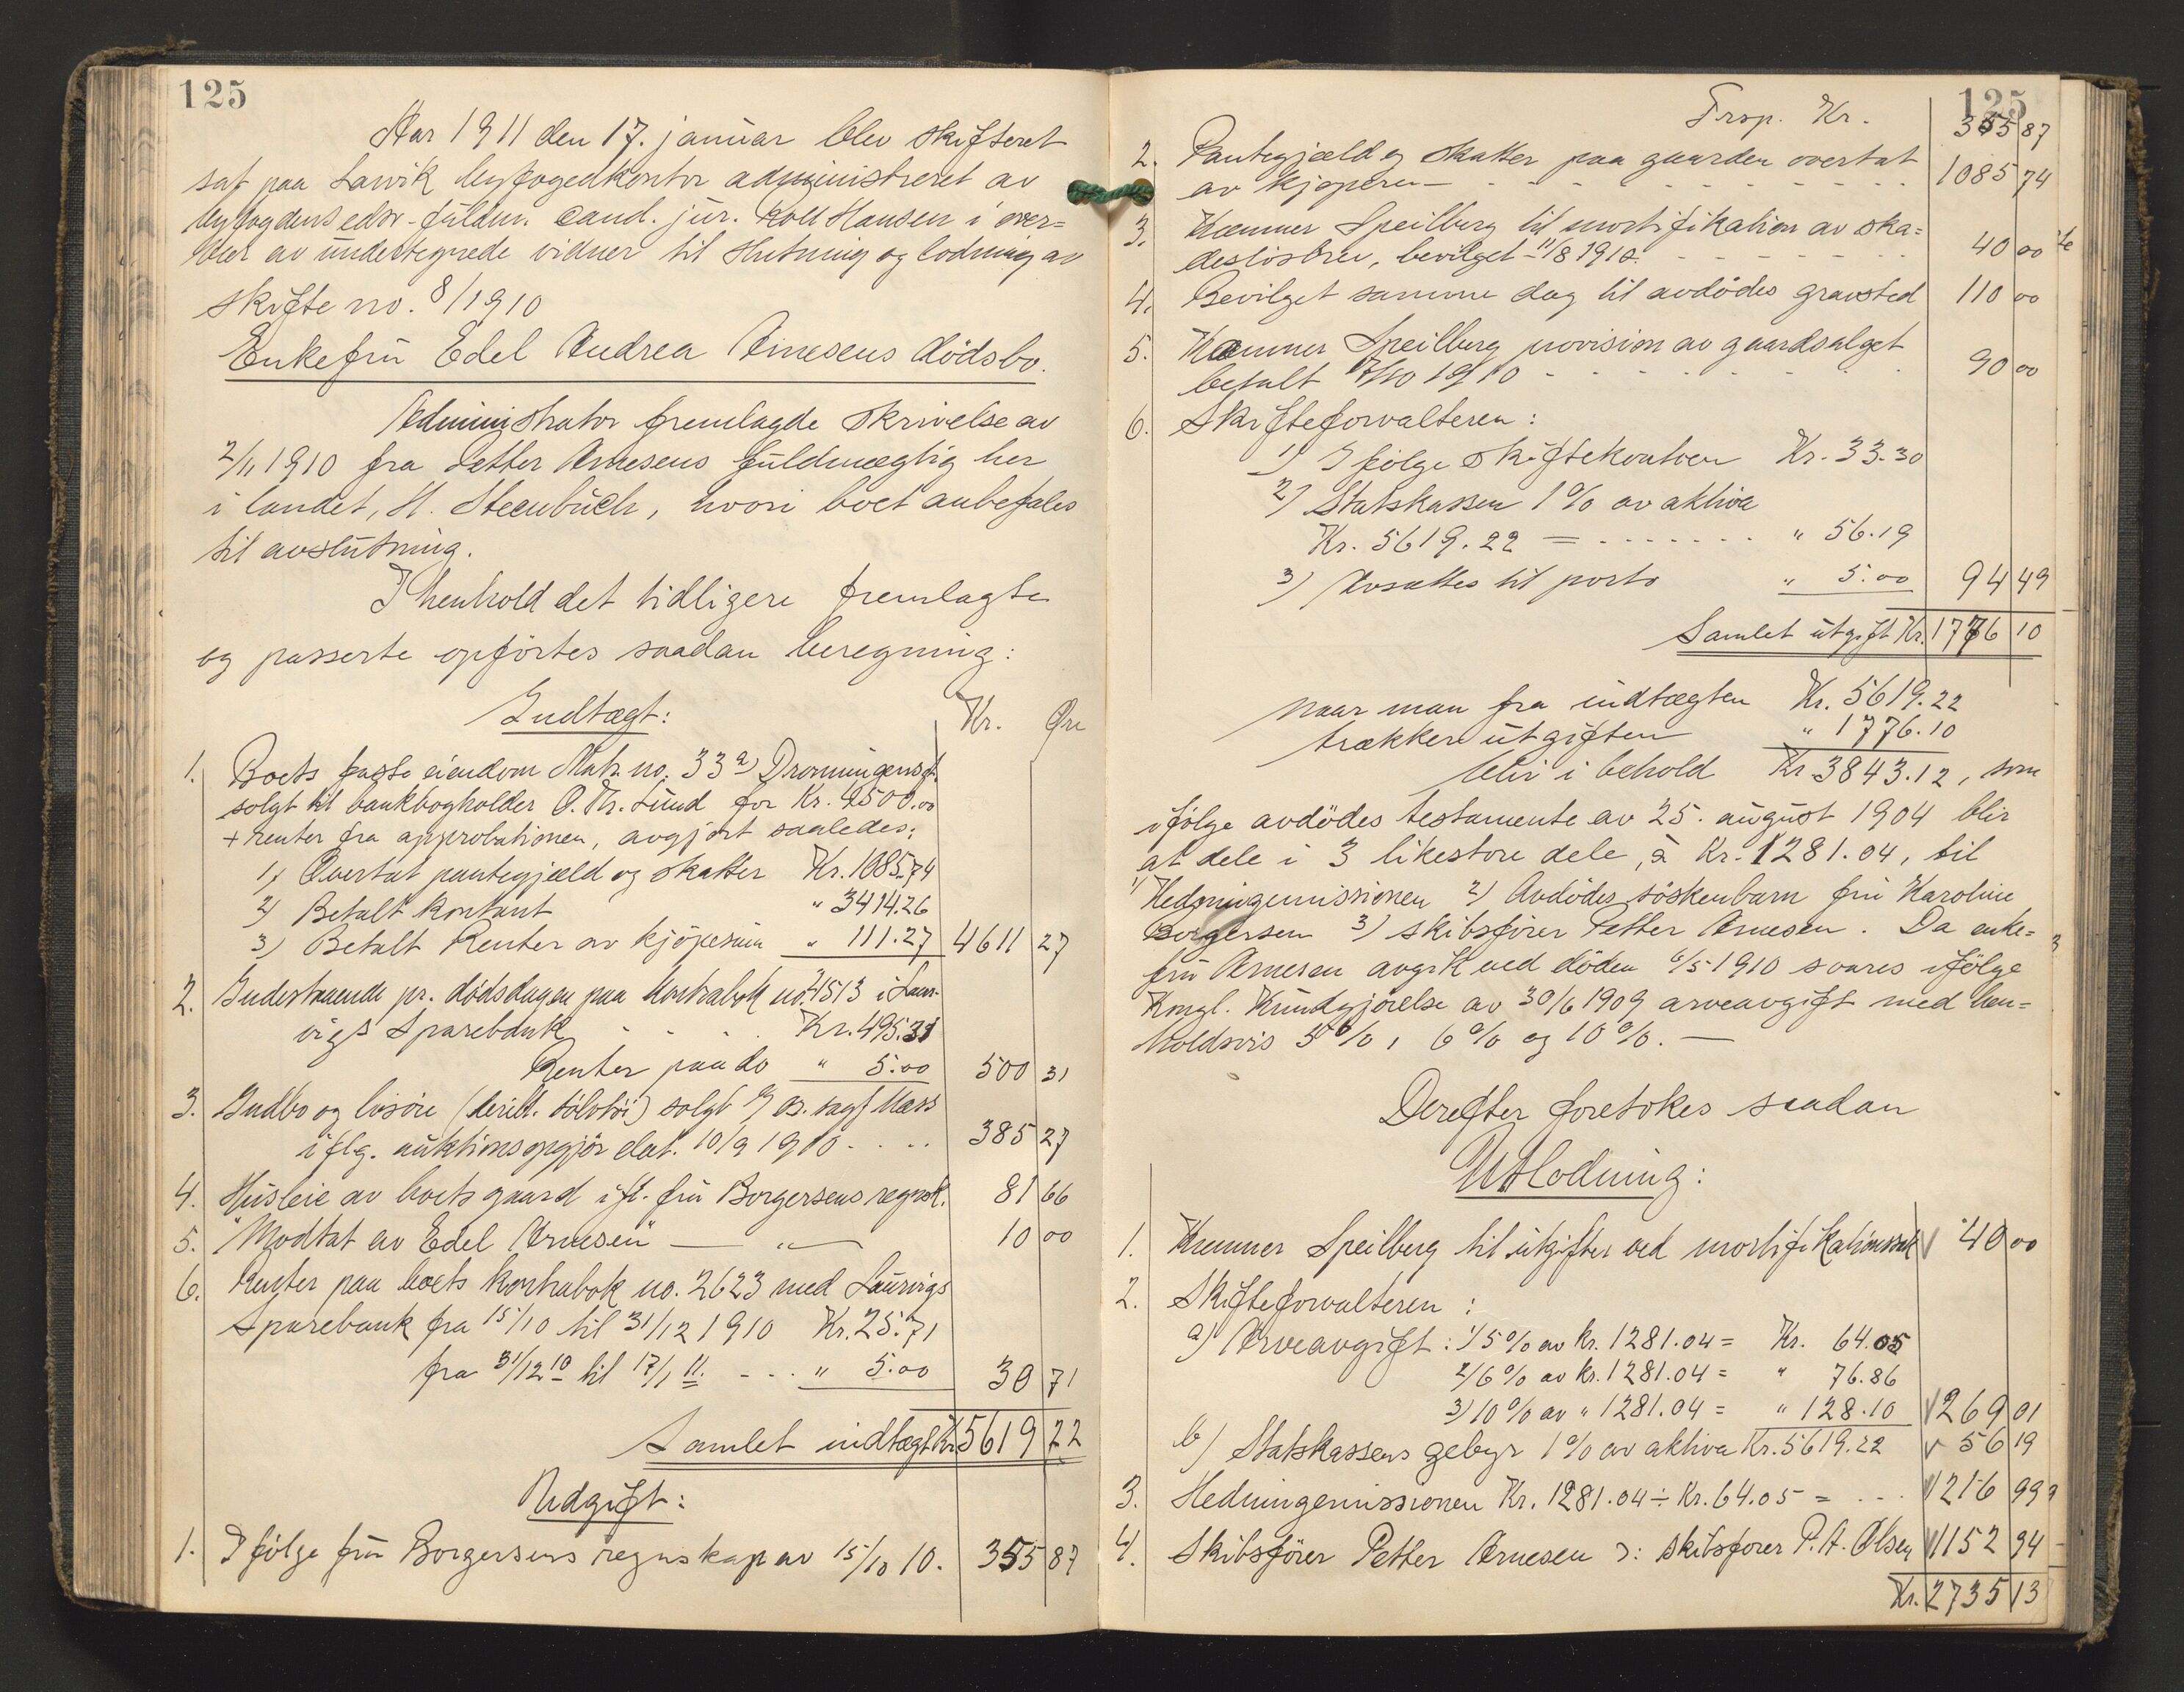 125
Aar 1911 den 17. januar blev skifteret
sat paa Larvik byfogedkontor administreret av
byfogdens edsv. fuldm. cand. jur. Rolf Hansen i over=
vær av undertegnede vidner til slutning og lodning av
skifte no. 8/1910
Enkefru Edel Andrea Arnesens dödsbo.
Administrator fremlagde skrivelse av
2/11 1910 fra Petter Arnesens fuldmægtig her
i landet, H. Steenbuch, hvori boet anbefales
til avslutning.
I henhold det tidligere fremlagte
og passerte opförtes saadan beregning:
Indtægt: Kr. Øre
1. Boets faste eiendom Matr. no. 33a) Dronningensgt.
solgt til bankbogholder O. Chr. Lund for Kr. 4500.00
+ renter fra approbationen, avgjort saaledes:
1) Overtat pantegjæld og skatter Kr. 1085.74
2) Betalt kontant " 3414.26
3) Betalt Renter av kjöpesum " 111.27 4611 27
2. Indestaaende pr. dödsdagen paa kontrabok no. 4513 i Laur-
vigs Sparebank . . . Kr. 495.31
Renter paa do " 5.00 500 31
3. Indbo og lösöre (derib. sölvtöi) solgt
iflg. auktionsopgjör dat. 10/9 1910 . . . . 385 27
4. Husleie av boets gaard ifl. fru Borgersens regnsk. 81 66
5. "Modtat av Edel Arnesen" — " — 10 00
6. Renter paa boets kontrabok no. 2623 med Laurvigs
Sparebank fra 15/10 til 31/12 1910 Kr. 25.71
fra 31/12 10 til 17/1 11. - - . . " 5.00 30 71
Samlet indtægt Kr. 5619 22
Udgift:
1. Ifölge fru Borgersens regnskap av 15/10 10. 355 87
125
Trsp. Kr. 355 87
2. Pantegjæld og skatter paa gaarden overtat
av kjöperen - . . . . . . . . . 1085 74
3. Kæmner Speilberg til mortifikation av ska=
deslösbrev, bevilget 11/8 1910. - - - - - . . 40 00
4. Bevilget samme dag til avdödes gravsted 110 00
5. Kæmner Speilberg provision av gaardsalget
betalt 17/10 1910 - - - - - . . 90 00
6. Skifteforvalteren:
1) Ifölge skiftekontoen Kr. 33.30
2) Statskassen 1% av aktiva
Kr. 5619.22 = . . . . . . . " 56.19
3) Avsættes til porto " 5.00 94 49
Samlet utgift Kr. 1776 10
naar man fra indtægten Kr. 5619.22
trækker utgiften " 1776.10
blir i behold Kr. 3843.12, som
ifölge avdödes testamente av 25. august 1904 blir
at dele i 3 likestore dele, à Kr. 1281.04, til
1) Hedningemissionen 2) Avdödes söskenbarn fru Karoline
Borgersen 3) skibsförer Petter Arnesen. Da enke=
fru Arnesen avgik ved döden 6/5 1910 svares ifölge
Kongl. Kundgjörelse av 30/6 1909 arveavgift med hen=
holdsvis 5%, 6% og 10%. —
Derefter foretokes saadan
Utlodning:
1. Kæmner Speilberg til utgifter ved mortifikationssak 40 00
2. Skifteforvalteren :
a) Arveavgift: 1) 5% av kr. 1281.04 = Kr. 64.05
2) 6% av kr. 1281.04 = " 76.86
3) 10% av " 1281.04 = " 128.10 269 01
b) Statskassens gebyr 1% av aktiva Kr. 5619.22 56 19
3. Hedningemissionen Kr. 1281.04 ÷ Kr. 64.05 = . . . 1216 99
4. Skibsförer Petter Arnesen ɔ: skibsförer P. A. Olsen 1152 94
Kr. 2735 13